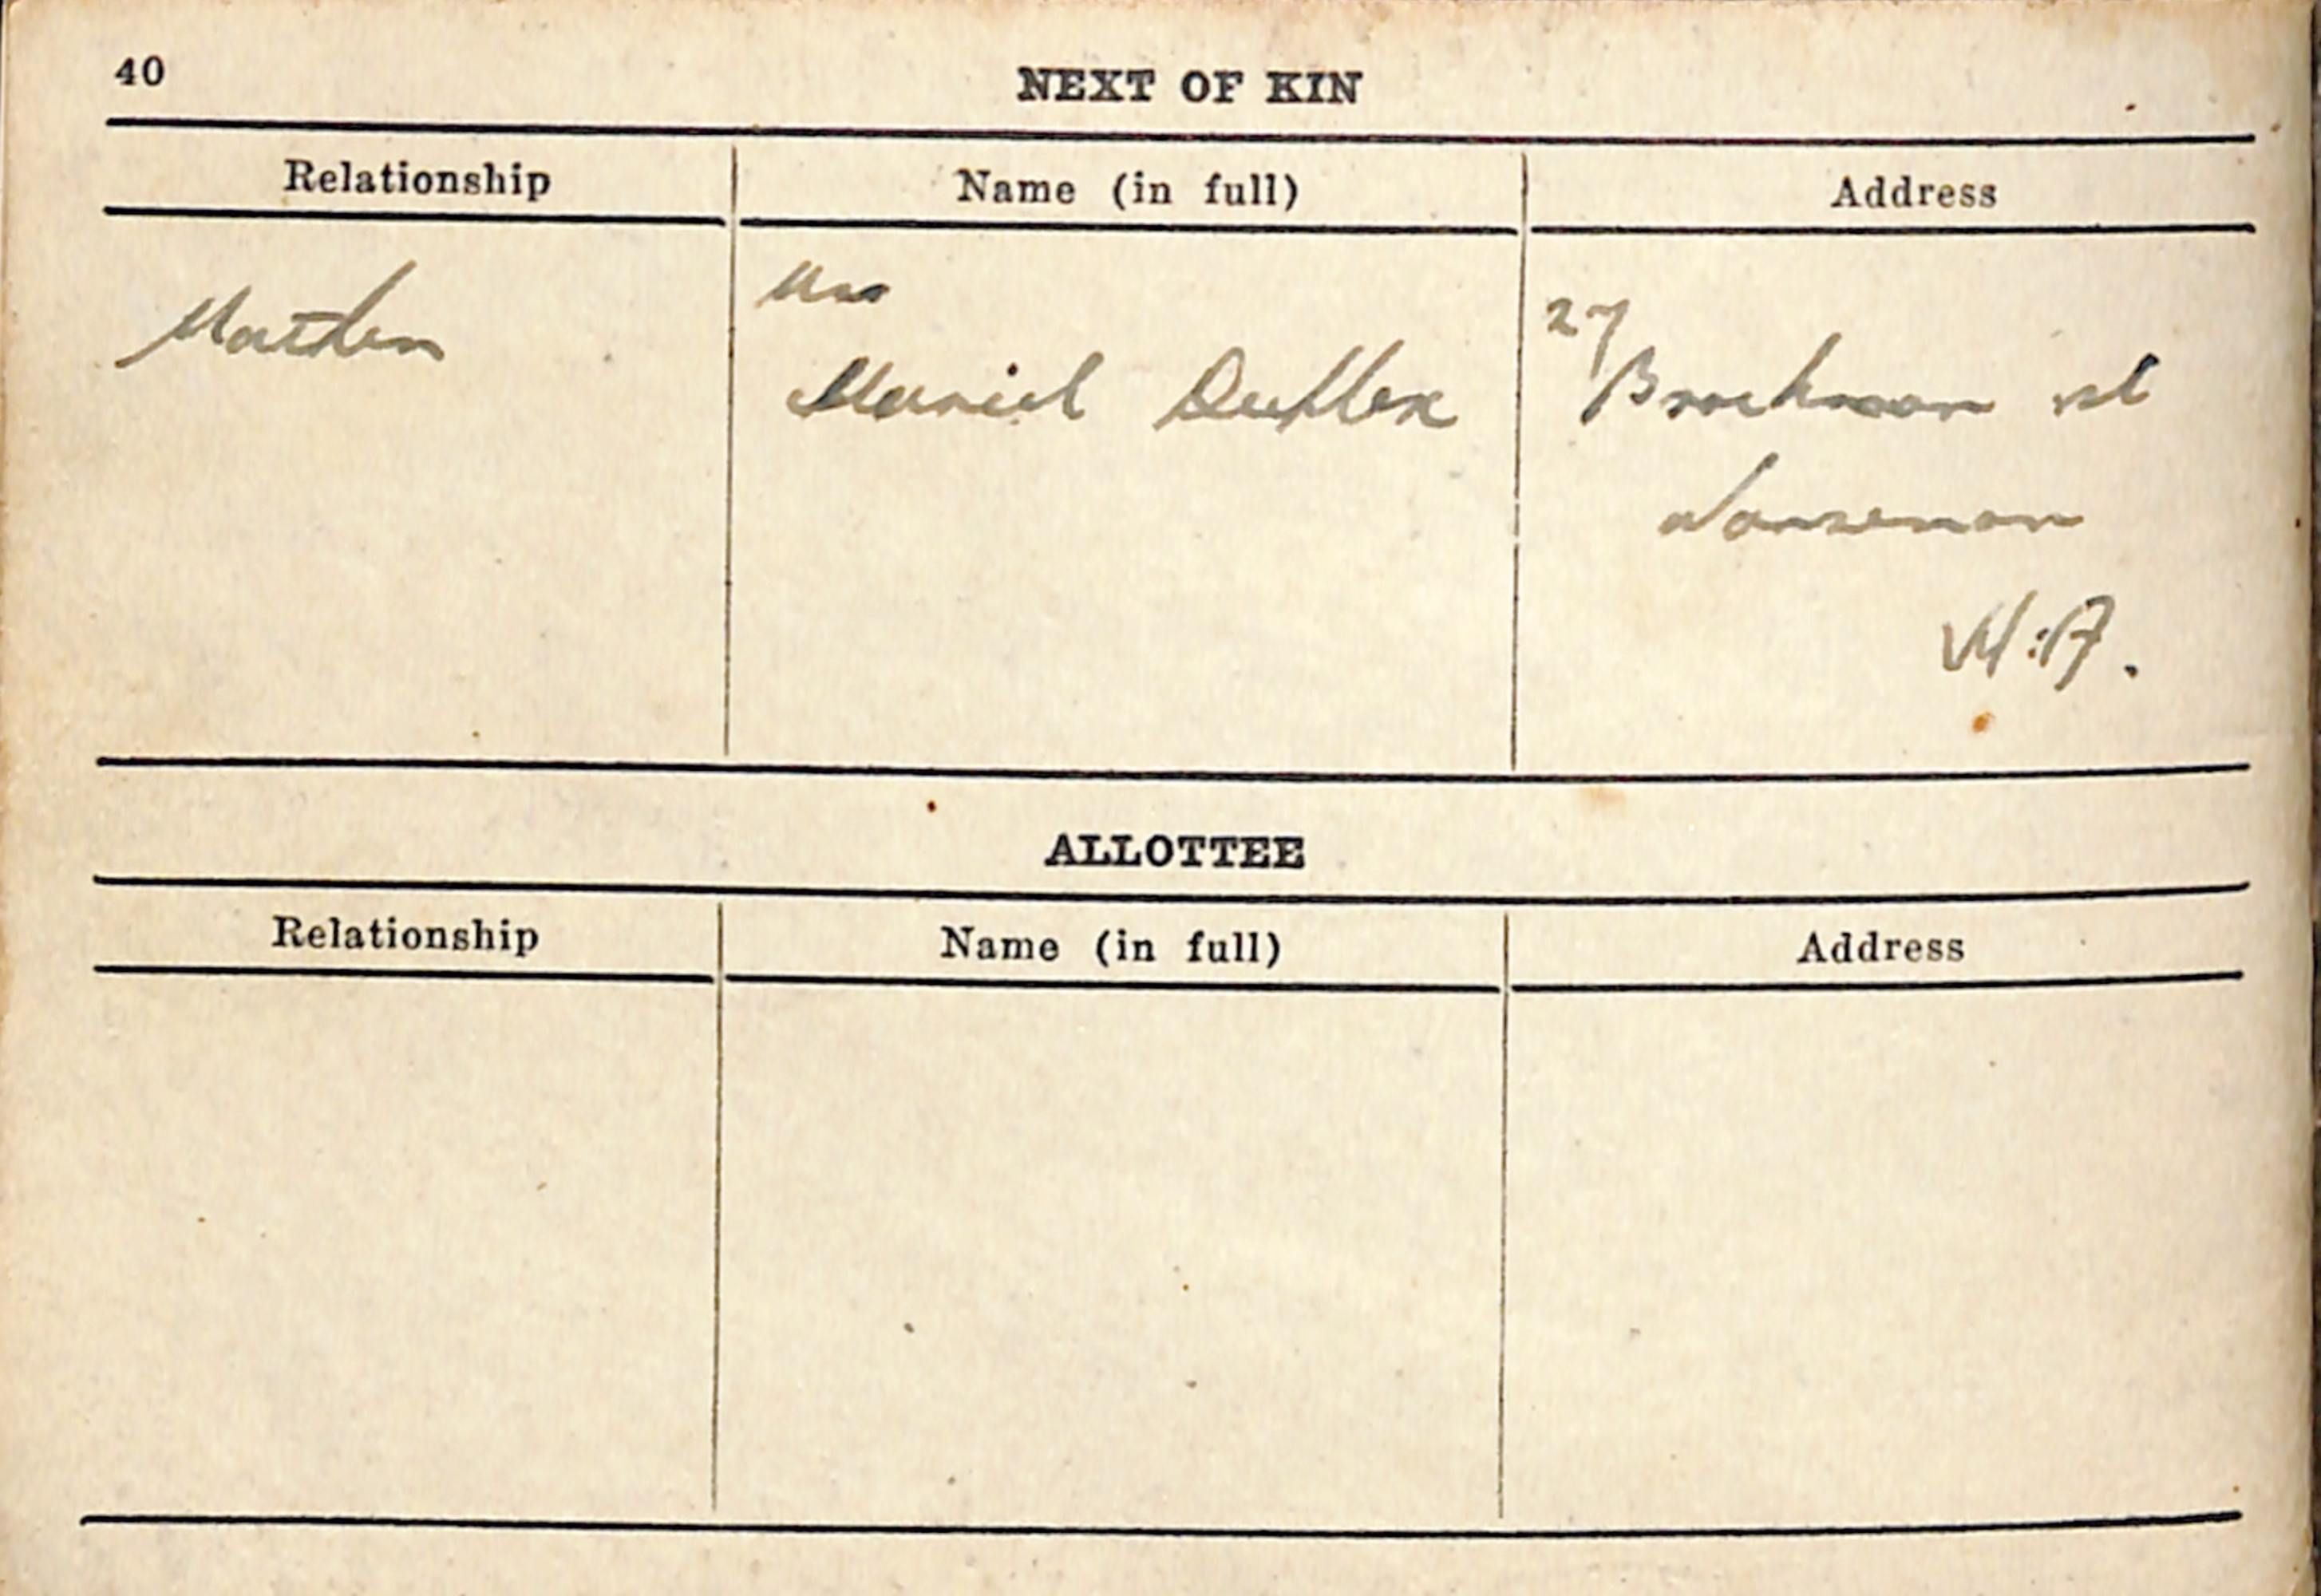 40
NEXT OF KIN
Relationship Name (in full) Address
Mother
Mrs
Muriel
27 Brockman st
W.A.
ALLOTTEE
Relationship Name (in full) Address